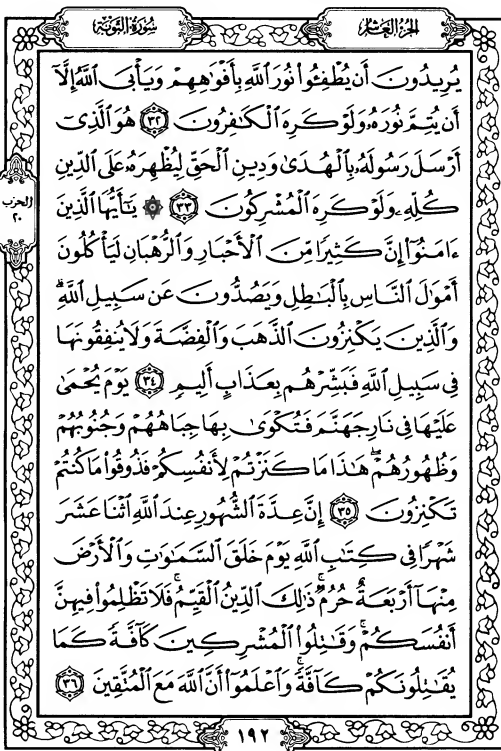 سُورَةُ التَّوْبَةِ
الجُزْءُ العَاشِرُ
يُرِيدُونَ أَن يُطْفِـُٔوا۟ نُورَ ٱللَّهِ بِأَفْوَٰهِهِمْ وَيَأْبَى ٱللَّهُ إِلَّآ
أَن يُتِمَّ نُورَهُۥ وَلَوْ كَرِهَ ٱلْكَٰفِرُونَ ٣٢ هُوَ ٱلَّذِىٓ
أَرْسَلَ رَسُولَهُۥ بِٱلْهُدَىٰ وَدِينِ ٱلْحَقِّ لِيُظْهِرَهُۥ عَلَى ٱلدِّينِ
كُلِّهِۦ وَلَوْ كَرِهَ ٱلْمُشْرِكُونَ ٣٣ ۞ يَٰٓأَيُّهَا ٱلَّذِينَ
الحزب
٢٠
ءَامَنُوٓا۟ إِنَّ كَثِيرًا مِّنَ ٱلْأَحْبَارِ وَٱلرُّهْبَانِ لَيَأْكُلُونَ
أَمْوَٰلَ ٱلنَّاسِ بِٱلْبَٰطِلِ وَيَصُدُّونَ عَن سَبِيلِ ٱللَّهِۗ
وَٱلَّذِينَ يَكْنِزُونَ ٱلذَّهَبَ وَٱلْفِضَّةَ وَلَا يُنفِقُونَهَا
فِى سَبِيلِ ٱللَّهِ فَبَشِّرْهُم بِعَذَابٍ أَلِيمٍ ٣٤ يَوْمَ يُحْمَىٰ
عَلَيْهَا فِى نَارِ جَهَنَّمَ فَتُكْوَىٰ بِهَا جِبَاهُهُمْ وَجُنُوبُهُمْ
وَظُهُورُهُمْۖ هَٰذَا مَا كَنَزْتُمْ لِأَنفُسِكُمْ فَذُوقُوا۟ مَا كُنتُمْ
تَكْنِزُونَ ٣٥ إِنَّ عِدَّةَ ٱلشُّهُورِ عِندَ ٱللَّهِ ٱثْنَا عَشَرَ
شَهْرًا فِى كِتَٰبِ ٱللَّهِ يَوْمَ خَلَقَ ٱلسَّمَٰوَٰتِ وَٱلْأَرْضَ
مِنْهَآ أَرْبَعَةٌ حُرُمٌۚ ذَٰلِكَ ٱلدِّينُ ٱلْقَيِّمُۚ فَلَا تَظْلِمُوا۟ فِيهِنَّ
أَنفُسَكُمْۚ وَقَٰتِلُوا۟ ٱلْمُشْرِكِينَ كَآفَّةً كَمَا
يُقَٰتِلُونَكُمْ كَآفَّةًۚ وَٱعْلَمُوٓا۟ أَنَّ ٱللَّهَ مَعَ ٱلْمُتَّقِينَ ٣٦
١٩٢